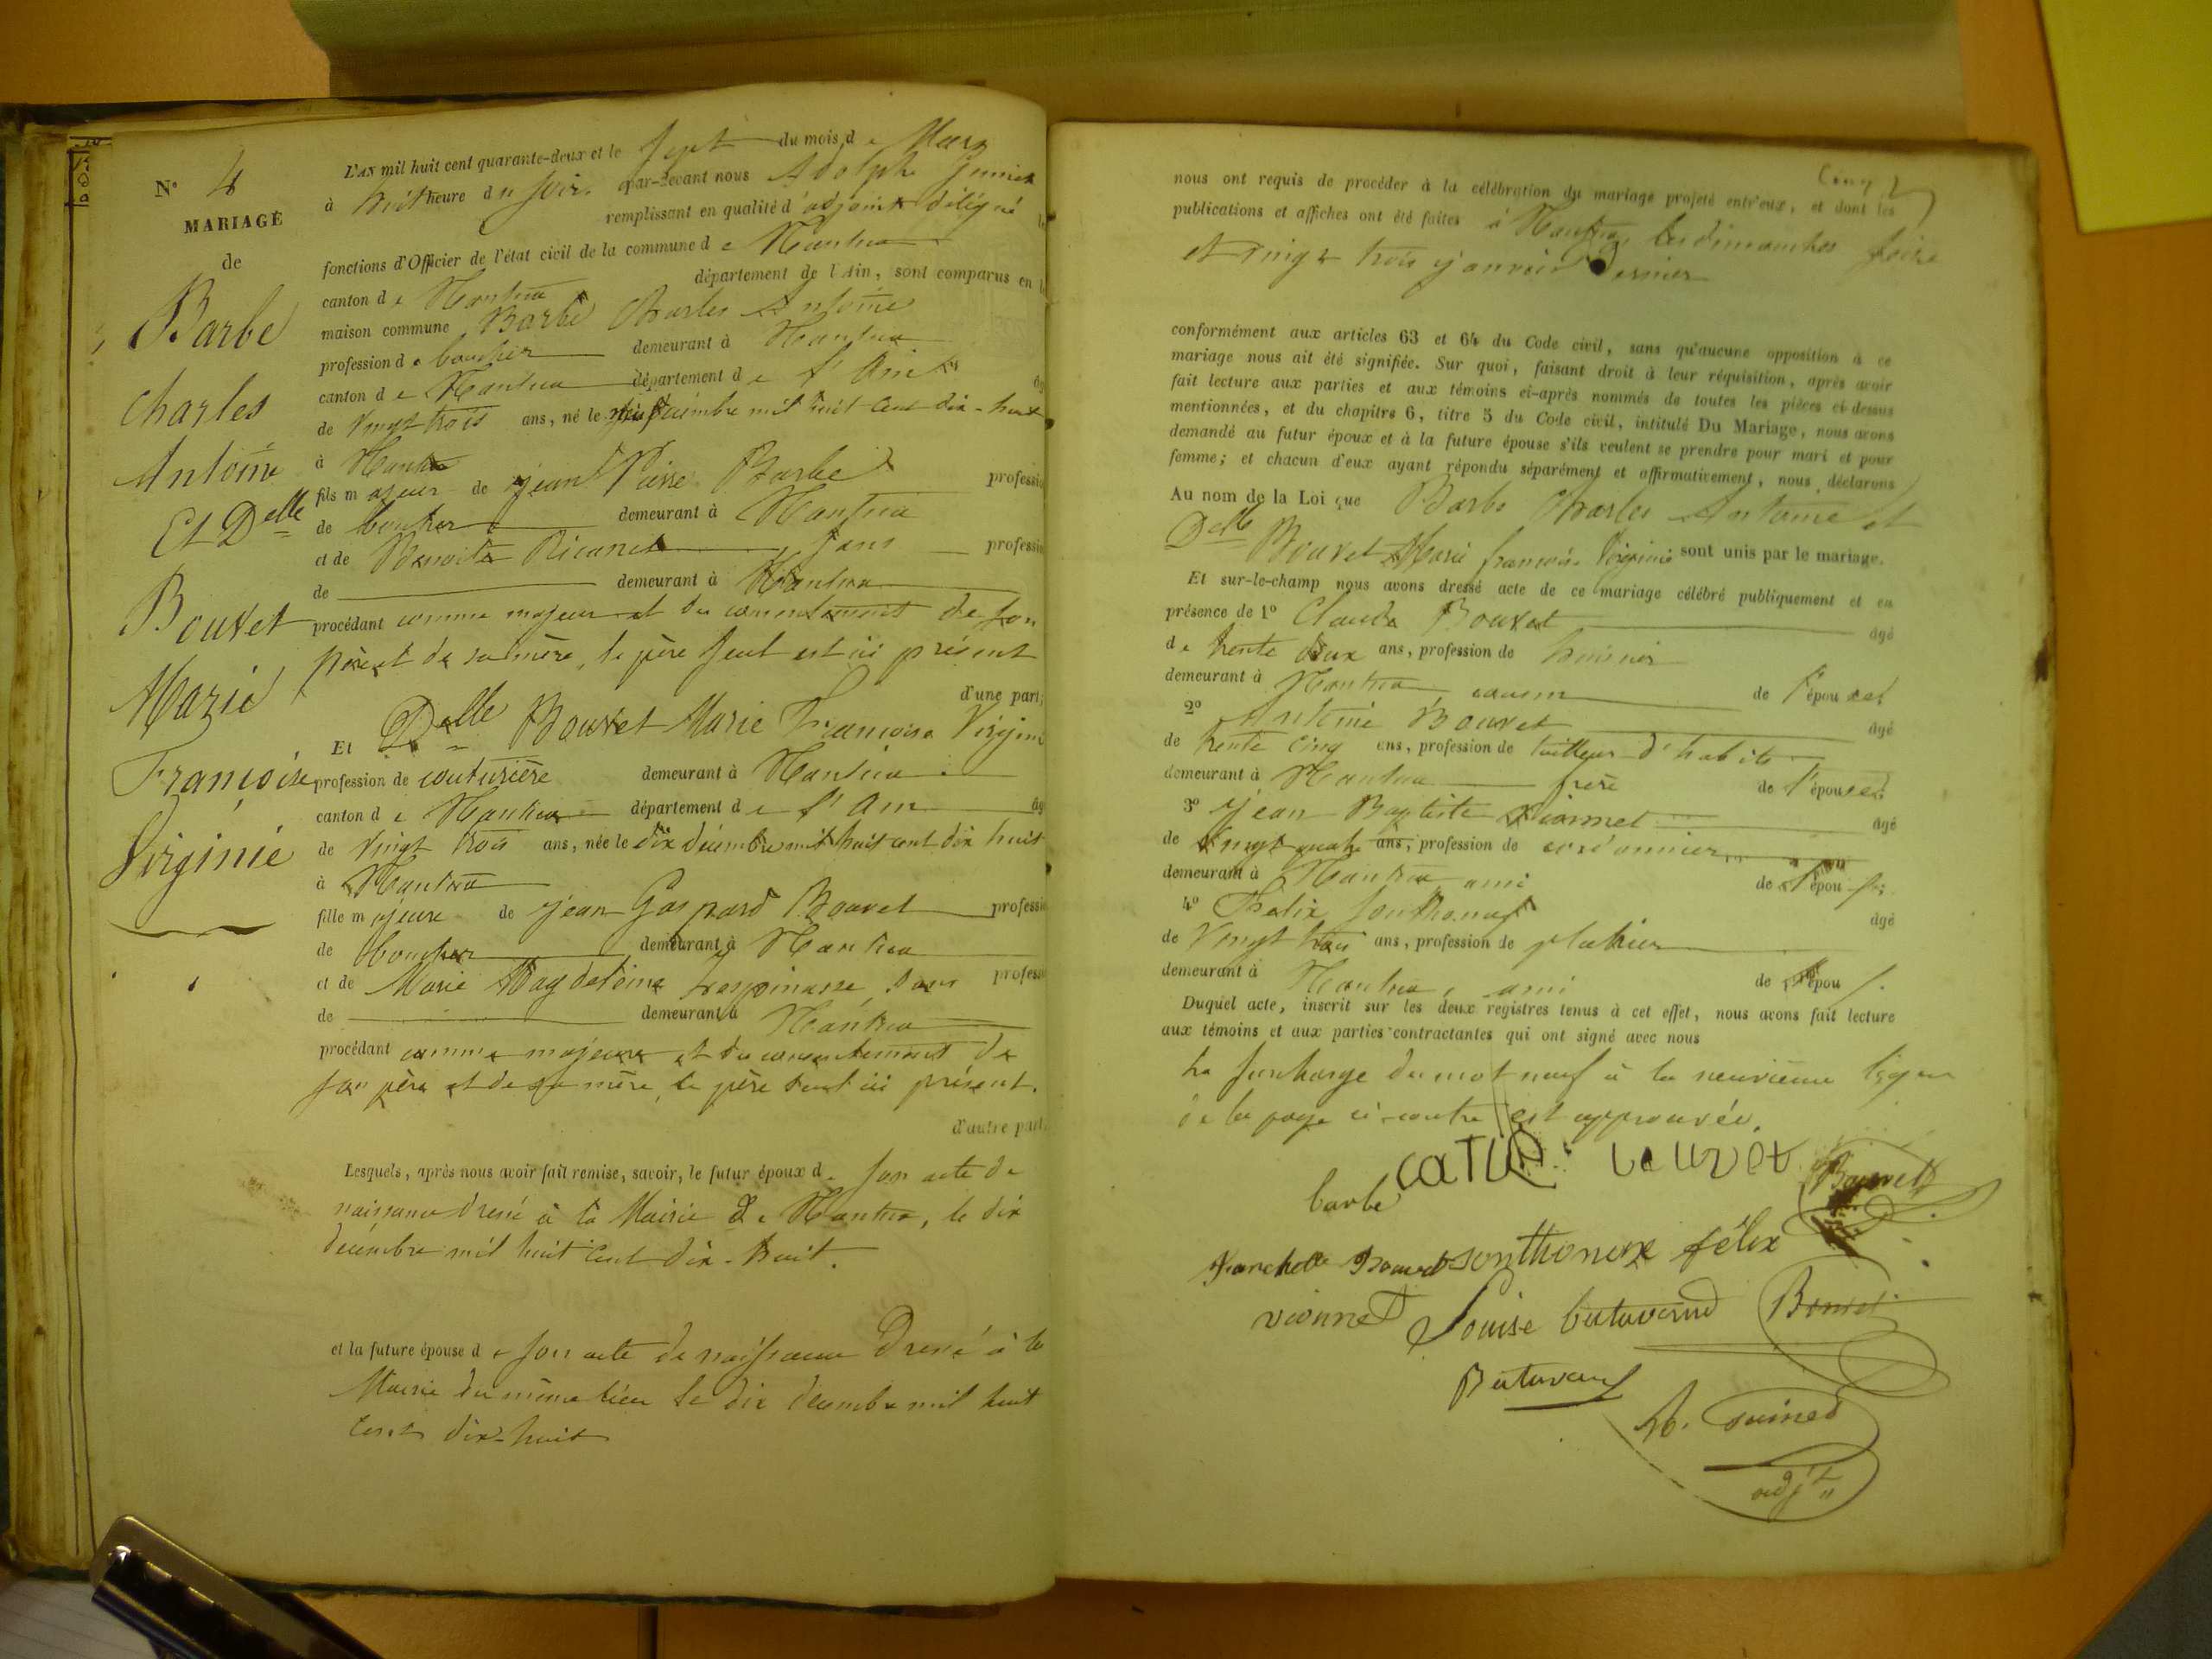 N° 4
MARIAGE
de
Barbe
Charles
Antoine
Et Delle
Bouvet
Marie
Françoise
Virginie
L'AN mil huit cent quarante-deux et le sept du mois de Mars
à huit heure du soir. par-devant nous Adolphe
remplissant en qualité d'adjoint délégué
fonctions d'Officier de l'état civil de la commune de Nantua
canton de Nantua département de l'Ain, sont comparus en
maison commune Barbe Charles Antoine
profession de boucher demeurant à Nantua
canton de Nantua département de l'Ain
de vingt trois ans, né le neuf décembre mil huit cent dix-huit
à Nantua
fils majeur de jean Pierre Barbe professio
de boucher demeurant à Nantua
et de Benoite sans professio
de demeurant à Nantua
procédant comme majeur et du consentement de son
père et de sa mère, le père seul est ici présent
d'une part;
Et Delle Bouvet Marie Françoise Virginie
profession de couturière demeurant à Nantua
canton de Nantua département de l'Ain âg
de vingt trois ans, née le dix décembre mil huit cent dix huit
à Nantua
fille majeure de jean Gaspard Bouvet professio
de boucher demeurant à Nantua
et de Marie Magdeleine Lespinasse, sans professi
de demeurant à Nantua
procédant comme majeure et du consentement de
son père et de sa mère, le père seul ici présent.
d'autre part.
Lesquels, après nous avoir fait remise, savoir, le futur époux de son acte de
naissance dressé à la Mairie de Nantua, le dix
décembre mil huit cent dix-huit.
et la future épouse de son acte de naissance dressé à la
Mairie du même lieu le dix décembre mil huit
cent dix-huit
nous ont requis de procéder à la célébration du mariage projeté entr'eux, et dont les
publications et affiches ont été faites à Nantua les dimanches seize
et vingt trois janvier dernier
conformément aux articles 63 et 64 du Code civil, sans qu'aucune opposition à ce
mariage nous ait été signifiée. Sur quoi, faisant droit à leur réquisition, après avoir
fait lecture aux parties et aux témoins ci-après nommés de toutes les pièces ci-dessus
mentionnées, et du chapitre 6, titre 5 du Code civil, intitulé Du Mariage, nous avons
demandé au futur époux et à la future épouse s'ils veulent se prendre pour mari et pour
femme; et chacun d'eux ayant répondu séparément et affirmativement, nous déclarons
Au nom de la Loi que Barbe Charles Antoine et
Delle Bouvet Marie françoise Virginie sont unis par le mariage.
Et sur-le-champ nous avons dressé acte de ce mariage célébré publiquement et en
présence de 1° Claude Bouvet âgé
de trente deux ans, profession de
demeurant à Nantua cousin de l'épouse;
2° Antoine Bouvet âgé
de trente cinq ans, profession de tailleur d'habits
demeurant à Nantua frère de l'épouse;
3° jean Baptiste Vionnet âgé
de vingt quatre ans, profession de cordonnier
demeurant à Nantua ami de l'épou
4° Félix Sonthonax âgé
de vingt trois ans, profession de plâtrier
demeurant à Nantua, ami de l'épou
Duquel acte, inscrit sur les deux registres tenus à cet effet, nous avons fait lecture
aux témoins et aux parties contractantes qui ont signé avec nous
La surcharge du mot neuf à la neuvième ligne
de la page ci-contre est approuvée.
barbe
Bouvet
Bouvet sonthonax félix
vionnet Louise butavand Bouvet
Butavand
adjt